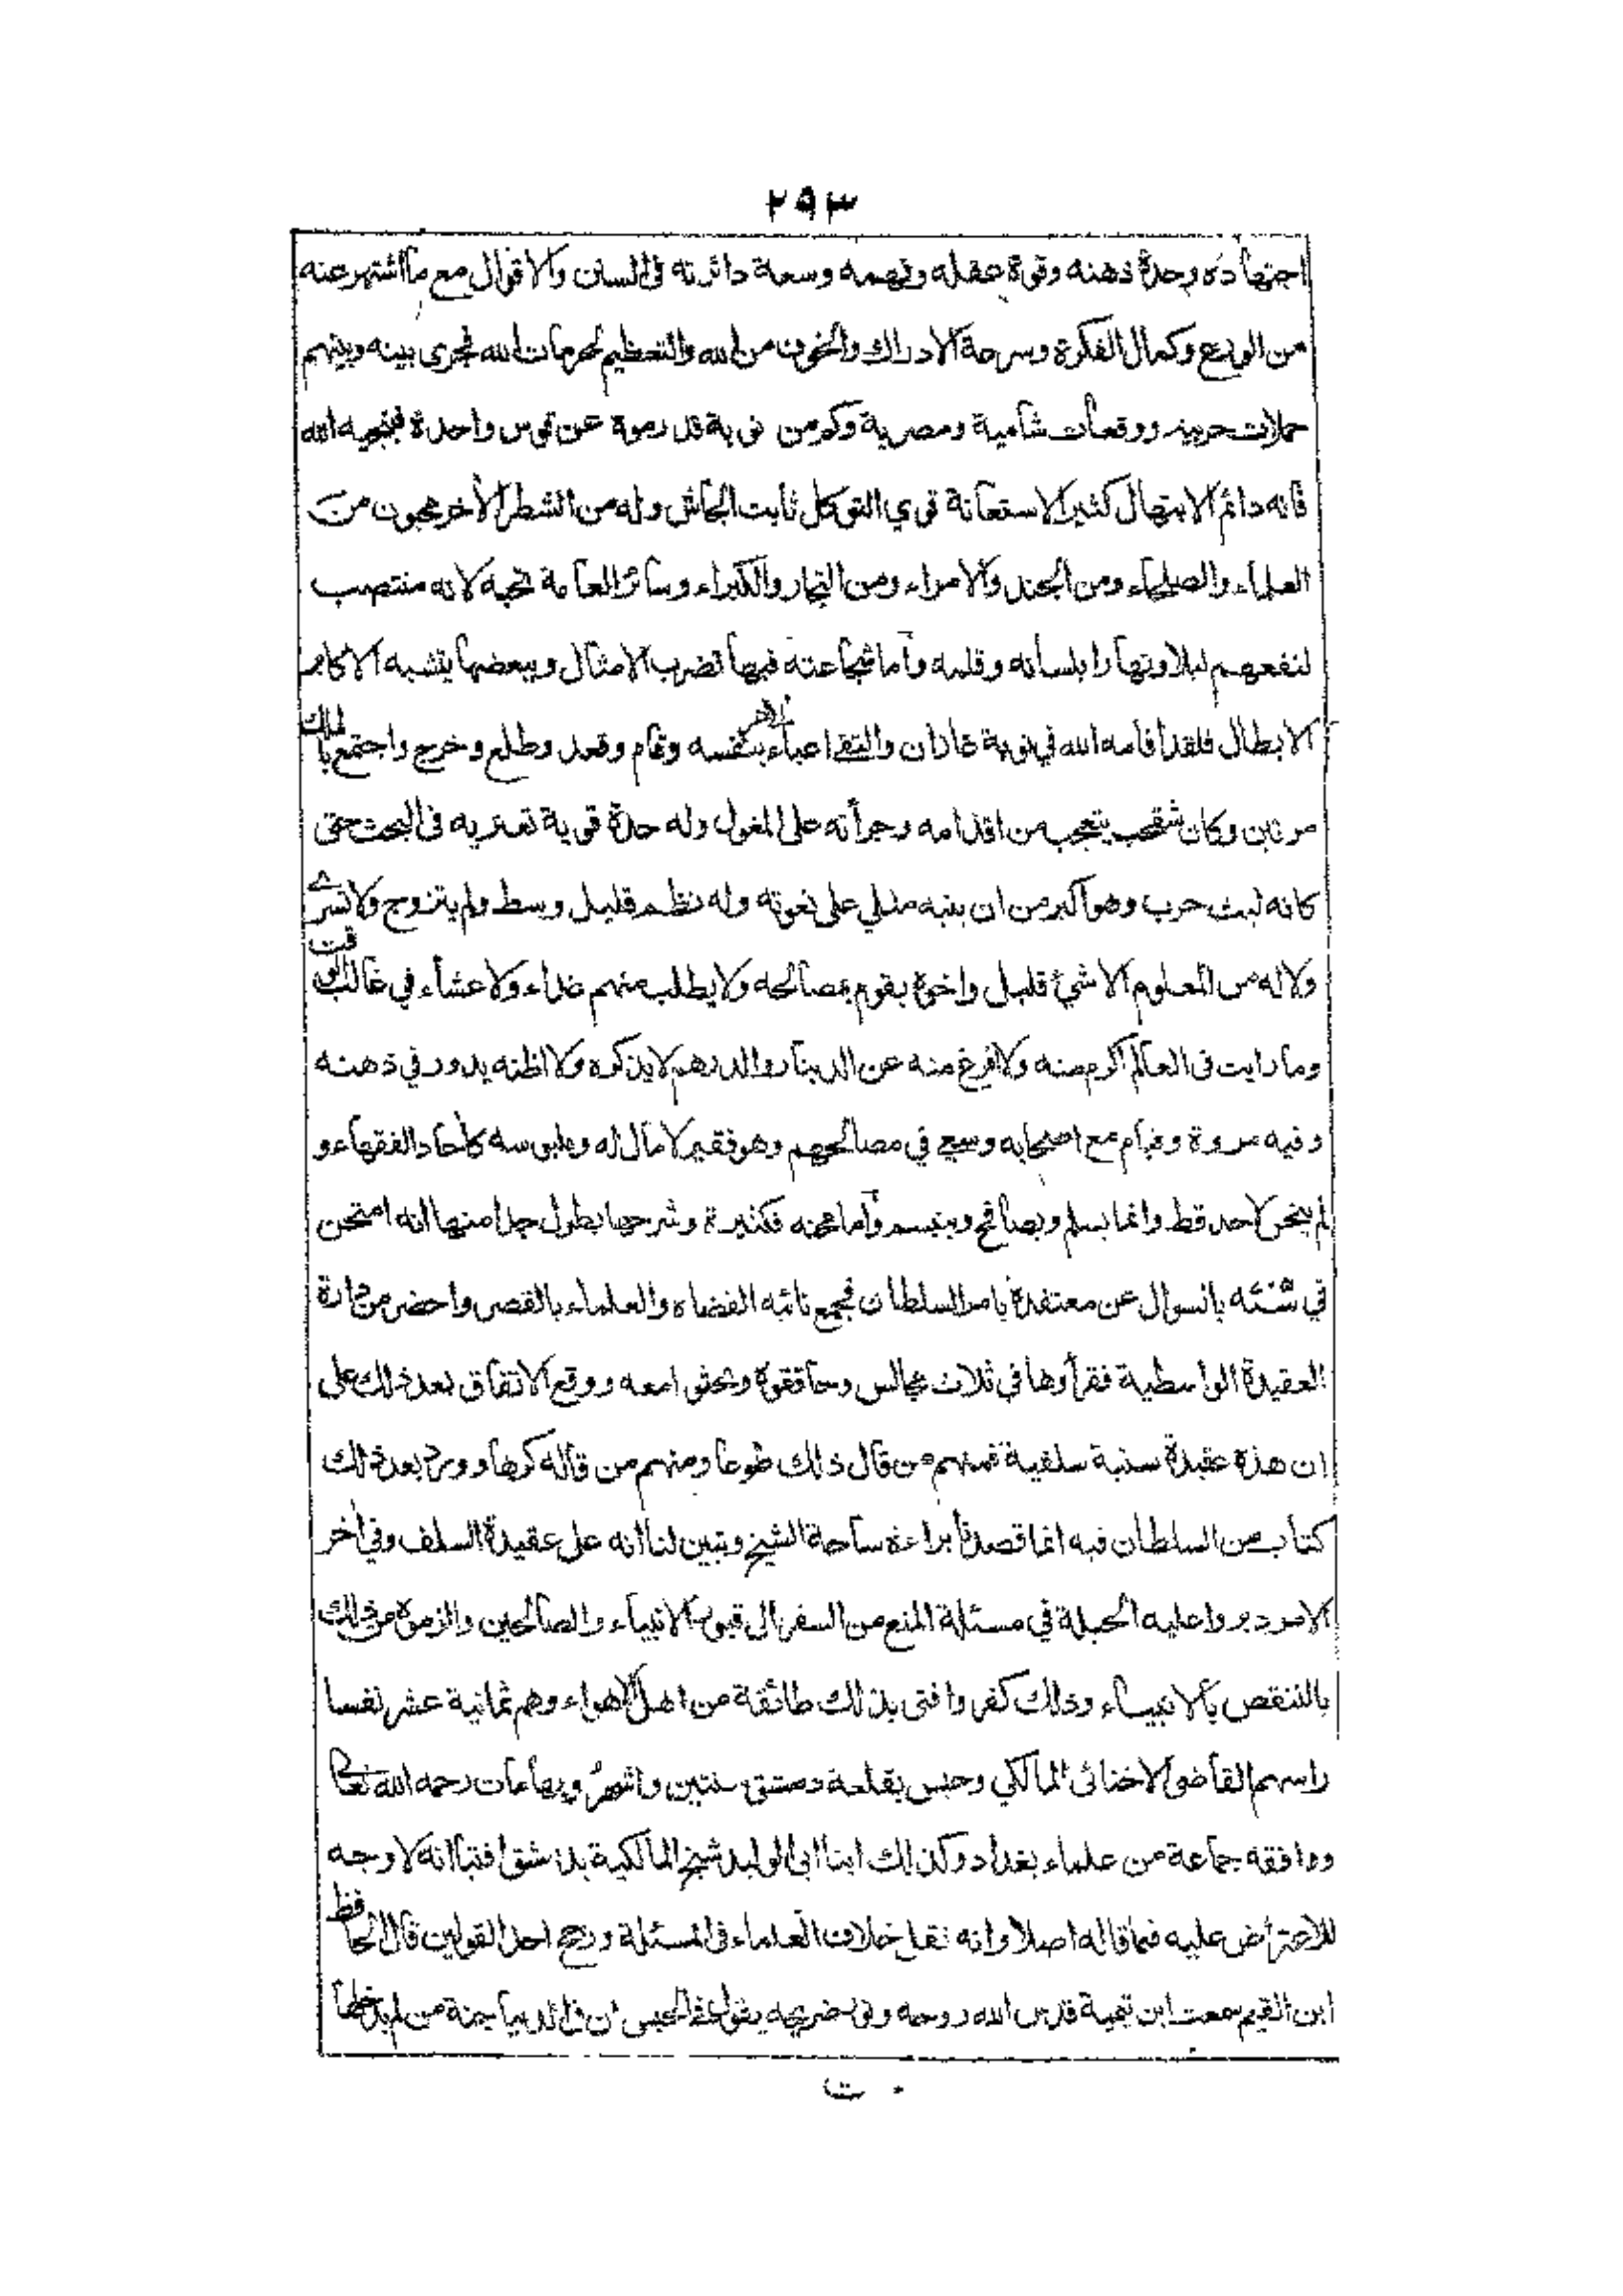 ٢٩٣
اجتهاده وحدة ذهنه وقوة عقله وفهمه وسعة دائرته فى السنن والاقوال مع ما اشتهر عنه
من الورع وكمال الفكرة وسرعة الادراك والخوف من الله والتعظيم لحرمات الله فجرى بينه وبينهم
حملات حربيه ووقعات شامية ومصرية وكم من نوبة قد رموة عن قوس واحدة فينجيه الله
فانه دائم الابتهال كثير الاستعانة قوي التوكل ثابت الجاش وله من الشطر الأخر محبون من
العلماء والصلحاء ومن الجند والامراء ومن التجار والكبراء وسائر العامة تحبه لانه منتصب
لنفعهم ليلا ونهارا بلسانه وقلبه وأما شجاعته فبها تضرب الامثال وببعضها يتشبه الاكابر
الابطال فلقد اقامه الله في نوبة غازان والتقى اعباء الامر بنفسه وقام وقعد وطلع وخرج واجتمع بالملك
مرتين وكان شقحب يتعجب من اقدامه وجرأته على المغول وله حدة قوية تعتريه فى البحث حتى
كانه ليث حرب وهو أكبر من ان ينبه مثلي على نعوته وله نظم قليل وسط ولم يتزوج ولا تسرى
ولا له من المعلوم الا شيئ قليل واخوة يقوم بمصالحه ولا يطلب منهم غداء ولا عشاء في غالب الوقت
وما رايت فى العالم اكرم منه ولا افرغ منه عن الدينار والدرهم لا يذكره ولا اظنه يدور في ذهنه
وفيه مروة وقيام مع اصحابه وسعي في مصالحهم وهو فقير لا مال له وملبوسه كأحاد الفقهاء و
لم ينحن لاحد قط وانما يسلم ويصافح ويبتسم وأما محنه فكثيرة وشرحها يطول جدا منها انه امتحن
في سنة بالسوال عن معتقدة بامر السلطان فجمع نائبه القضاة والعلماء بالقصر واحضر من دارة
العقيدة الواسطية فقرأوها في ثلاث مجالس وحاققوة وبحثوا معه ووقع الاتفاق بعد ذلك على
ان هذه عقيدة سنية سلفية فمنهم من قال ذلك طوعا ومنهم من قاله كرها وورد بعد ذلك
كتاب من السلطان فيه انما قصدنا براءة ساحة الشيخ وتبين لنا انه على عقيدة السلف وفي أخر
الامر دبروا عليه الحيلة في مسئلة المنع من السفر الى قبور الانبياء والصالحين والزموة من ذلك
بالتنقص بالانبياء وذلك كفر وافتى بذلك طائفة من اهل الاهواء وهم ثمانية عشر نفسا
راسهم القاضى الاخنائى المالكي وحبس بقلعة دمشق سنتين واشهرا وبها مات رحمه الله تعالى
ووافقه جماعة من علماء بغداد وكذلك ابنا ابى الوليد شيخ المالكية بدمشق افتيا انه لا وجه
للاعتراض عليه فيما قاله اصلا وانه نقل خلاف العلماء فى المسئلة ورجح احد القولين قال الحافظ
ابن القيم سمعت ابن تيمية قدس الله روحه ونور ضريحه يقول فى الحبس ان فى الدنيا جنة من لم يدخلها
ت